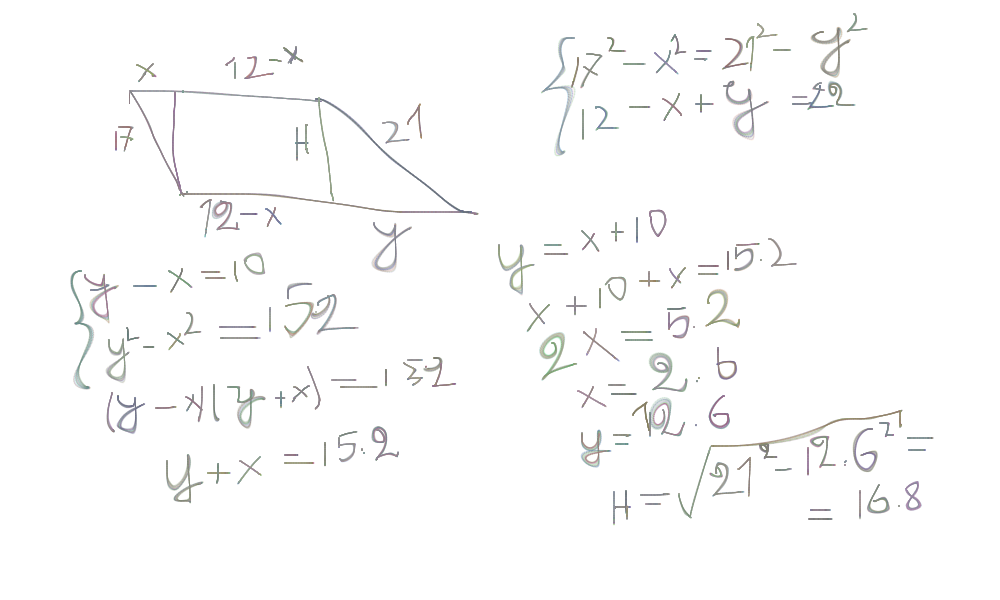 x 12-x
17 H 21
12-x y
{17² - x² = 21² - y²
12 - x + y = 22
{y - x = 10
y² - x² = 152
(y - x)(y + x) = 152
y + x = 15.2
y = x + 10
x + 10 + x = 15.2
2x = 5.2
x = 2.6
y = 12.6
H = √21² - 12.6² =
= 16.8